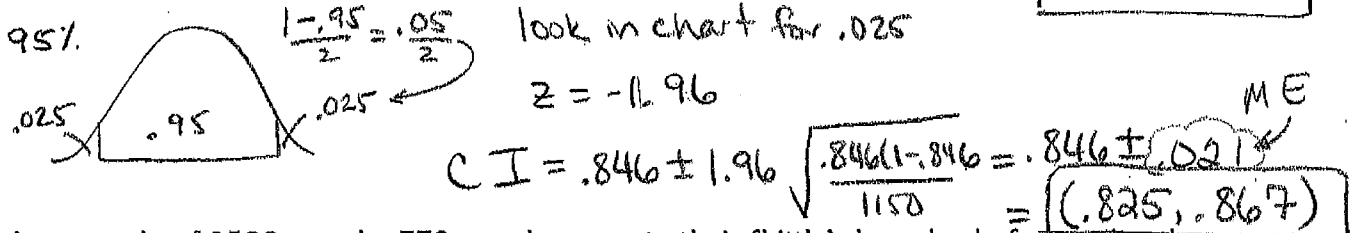 95%. 1-.95/2 = .05/2 look in chart for .025
.025 .95 .025 z = -1.96
ME
CI = .846 ± 1.96 √(.846(1-.846/1150) = .846 ± .021
= (.825, .867)